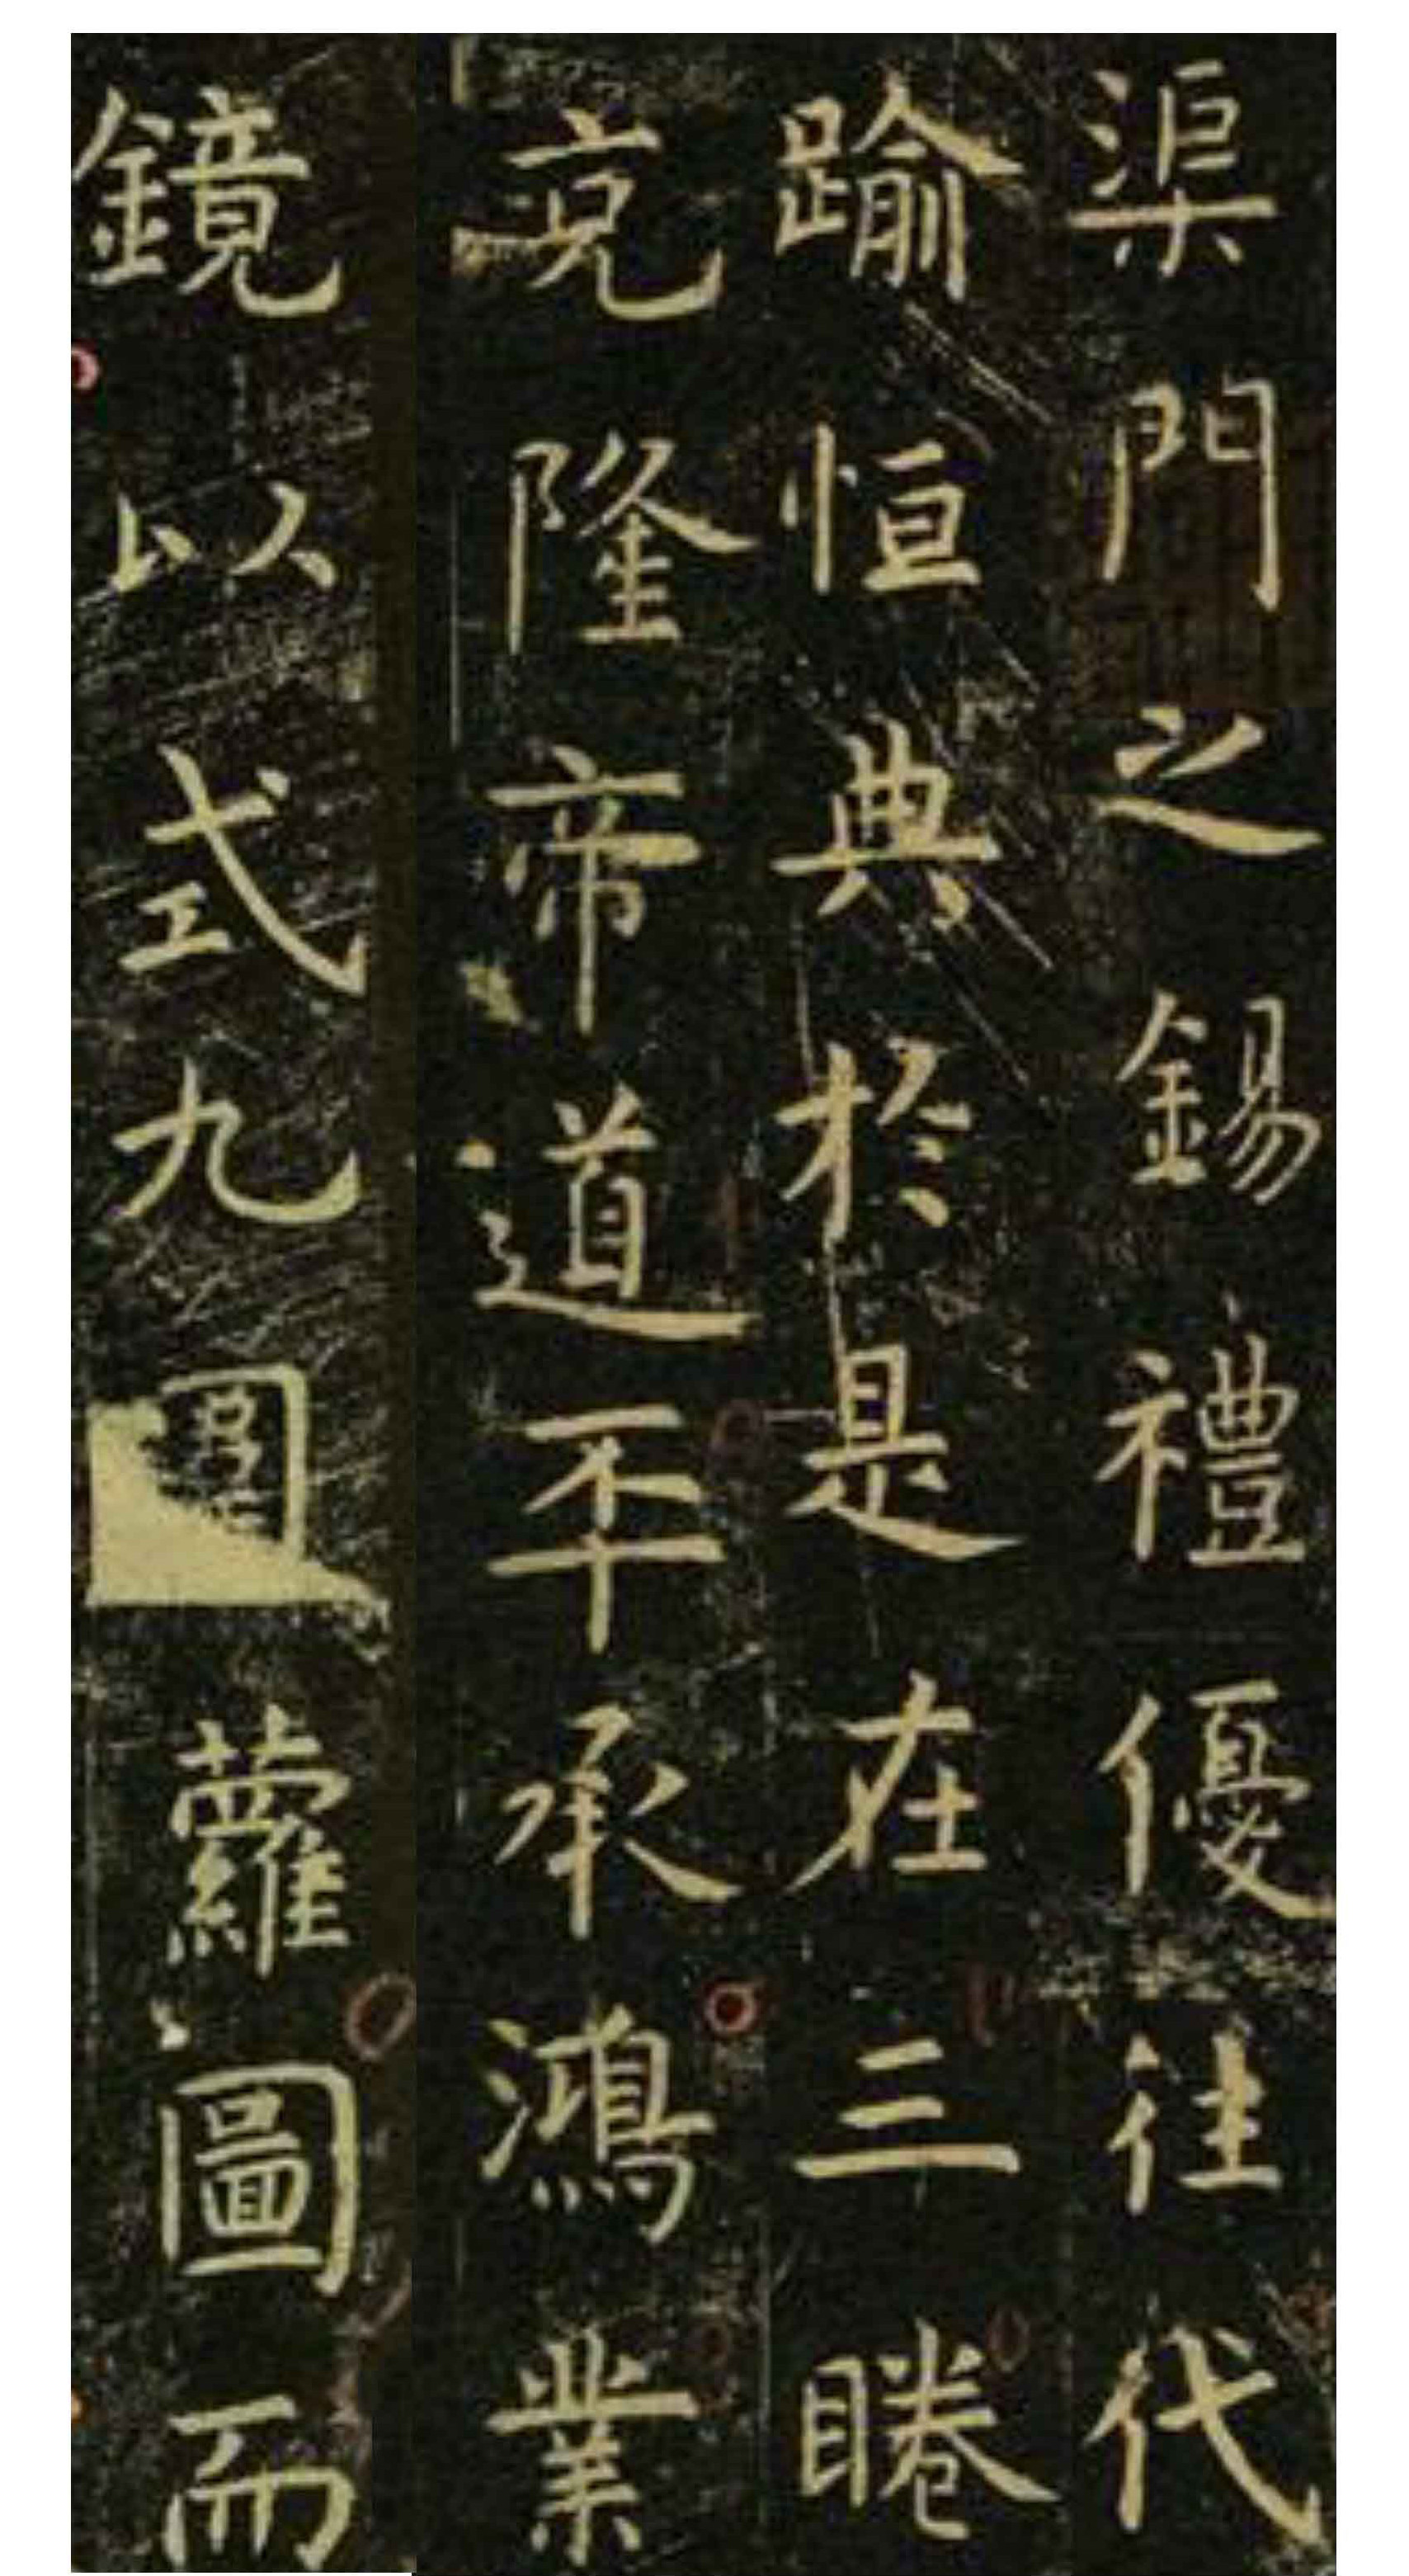 渠門之錫禮優往代
踰恒典於是在三睠
克隆帝道丕承鴻業
鏡以式九圍蘿圖而